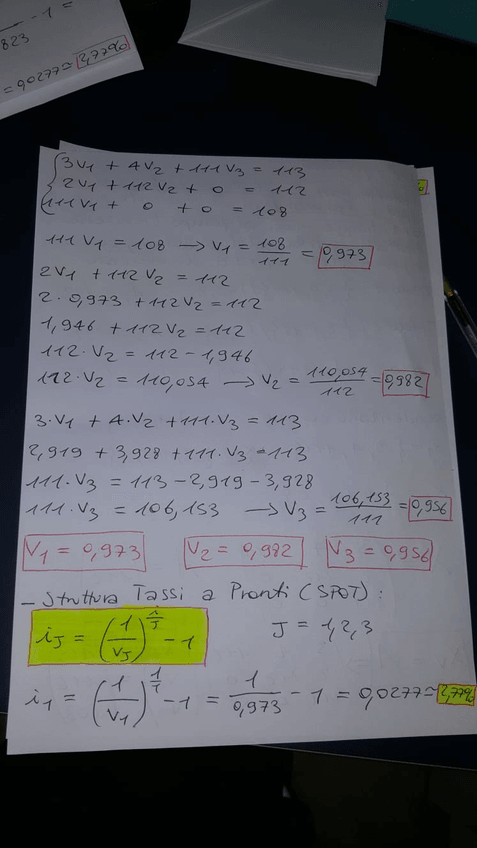 - 1 =
823
= 0,0277 ≃ 2,77%
3V₁ + 4V₂ + 111V₃ = 113
2V₁ + 112V₂ + 0 = 112
111V₁ + 0 + 0 = 108
111 V₁ = 108 → V₁ = 108/111 = 0,973
2V₁ + 112 V₂ = 112
2 · 0,973 + 112V₂ = 112
1,946 + 112V₂ = 112
112 · V₂ = 112 - 1,946
112 · V₂ = 110,054 → V₂ = 110,054/112 = 0,982
3·V₁ + 4·V₂ + 111·V₃ = 113
2,919 + 3,928 + 111·V₃ = 113
111·V₃ = 113 - 2,919 - 3,928
111·V₃ = 106,153 → V₃ = 106,153/111 = 0,956
V₁ = 0,973 V₂ = 0,982 V₃ = 0,956
- Struttura Tassi a Pronti (SPOT):
i_J = (1/V_J)^(1/J) - 1 J = 1,2,3
i₁ = (1/V₁)^(1/1) - 1 = 1/0,973 - 1 = 0,0277 ≃ 2,77%